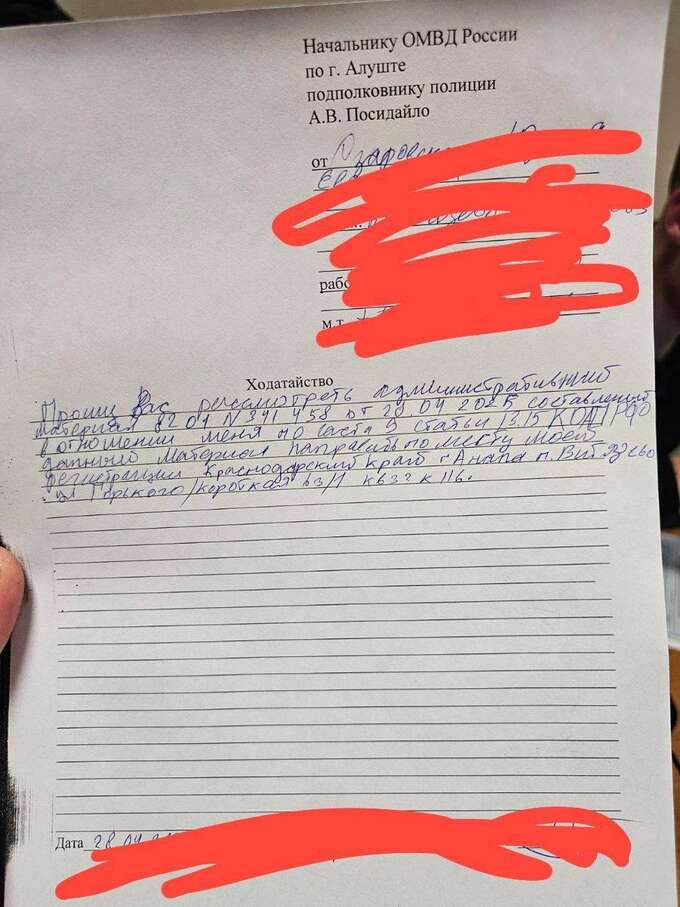 Начальнику ОМВД России
по г. Алуште
подполковнику полиции
А.В. Посидайло
от
рабо
м.т.
Ходатайство
Прошу Вас рассмотреть административный
материал 82 01 N 391458 от 28.04 2025 составлений
в отношении меня по части 5 статьи 13.15 КОАП РФ
данный материал направить по месту моей
регистрации Краснодарский край г Анапа п. Витязево
ул Горького/короткая
Дата 28.04